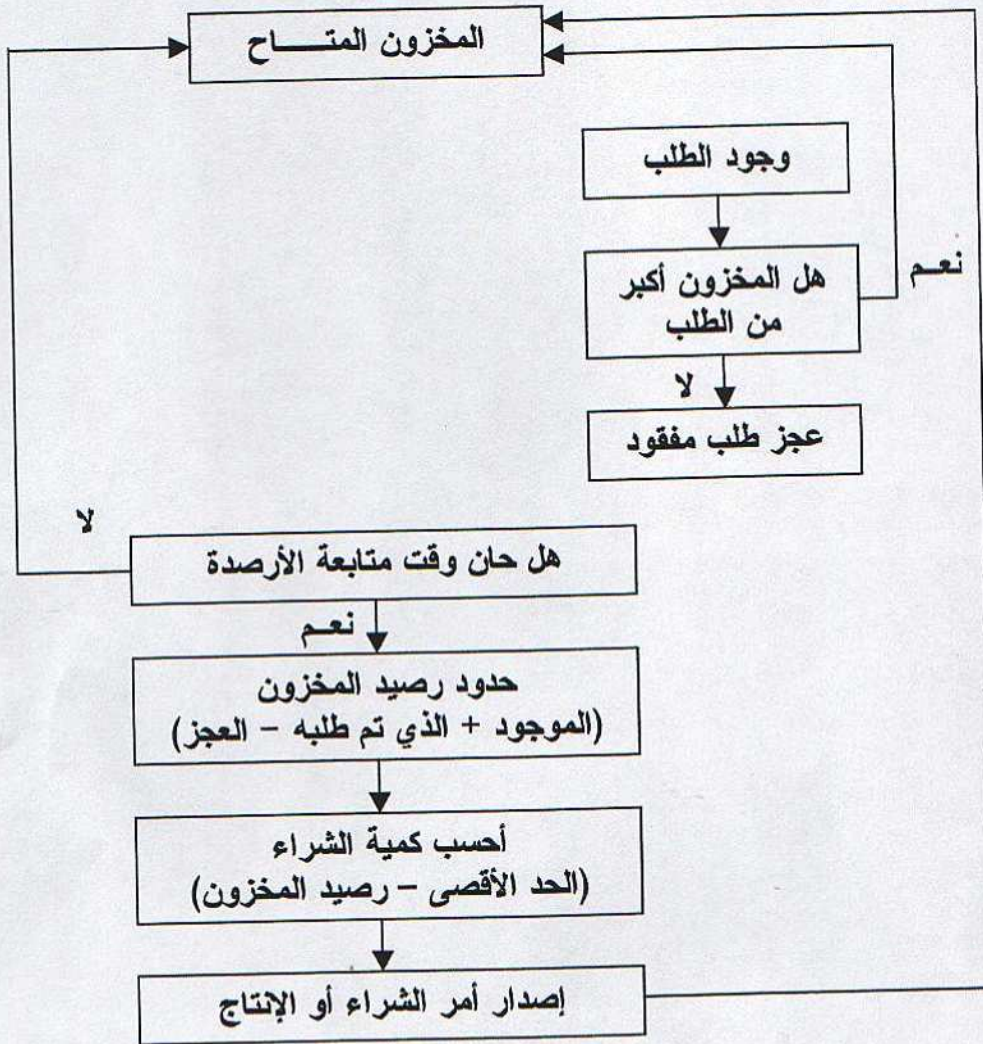 المخزون المتـــــاح
وجود الطلب
هل المخزون أكبر
من الطلب
نعـم
لا
عجز طلب مفقود
لا
هل حان وقت متابعة الأرصدة
نعـم
حدود رصيد المخزون
(الموجود + الذي تم طلبه – العجز)
أحسب كمية الشراء
(الحد الأقصى – رصيد المخزون)
إصدار أمر الشراء أو الإنتاج